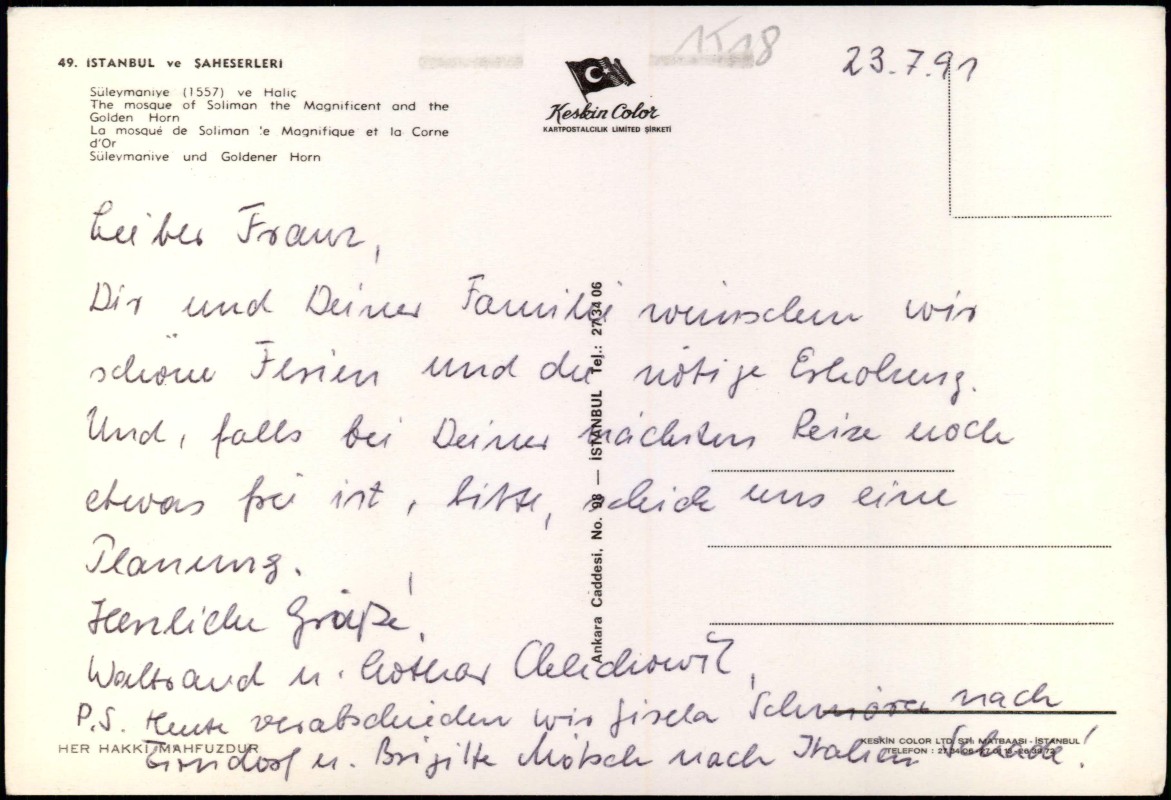 1518
23.7.91
49. İSTANBUL ve ŞAHESERLERİ
Süleymaniye (1557) ve Haliç
The mosque of Soliman the Magnificent and the
Golden Horn
La mosqué de Soliman le Magnifique et la Corne
d'Or
Süleymaniye und Goldener Horn
Keskin Color
KARTPOSTALCILIK LİMİTED ŞİRKETİ
Lieber Franz,
Dir und Deiner Familie wünschen wir
schöne Ferien und die nötige Erholung.
Und, falls bei Deiner nächsten Reise noch
etwas frei ist, bitte, schick uns eine
Planung.
Herzliche Grüße!
Waltraud u. Lothar
P.S. Heute verabschieden wir Gisela nach
u. Brigitte Mötsch nach Italien Schade!
Ankara Caddesi, No. 98 — İSTANBUL Tel.: 27 34 06
HER HAKKI MAHFUZDUR
KESKİN COLOR LTD. ŞTİ. MATBAASI - İSTANBUL
TELEFON :